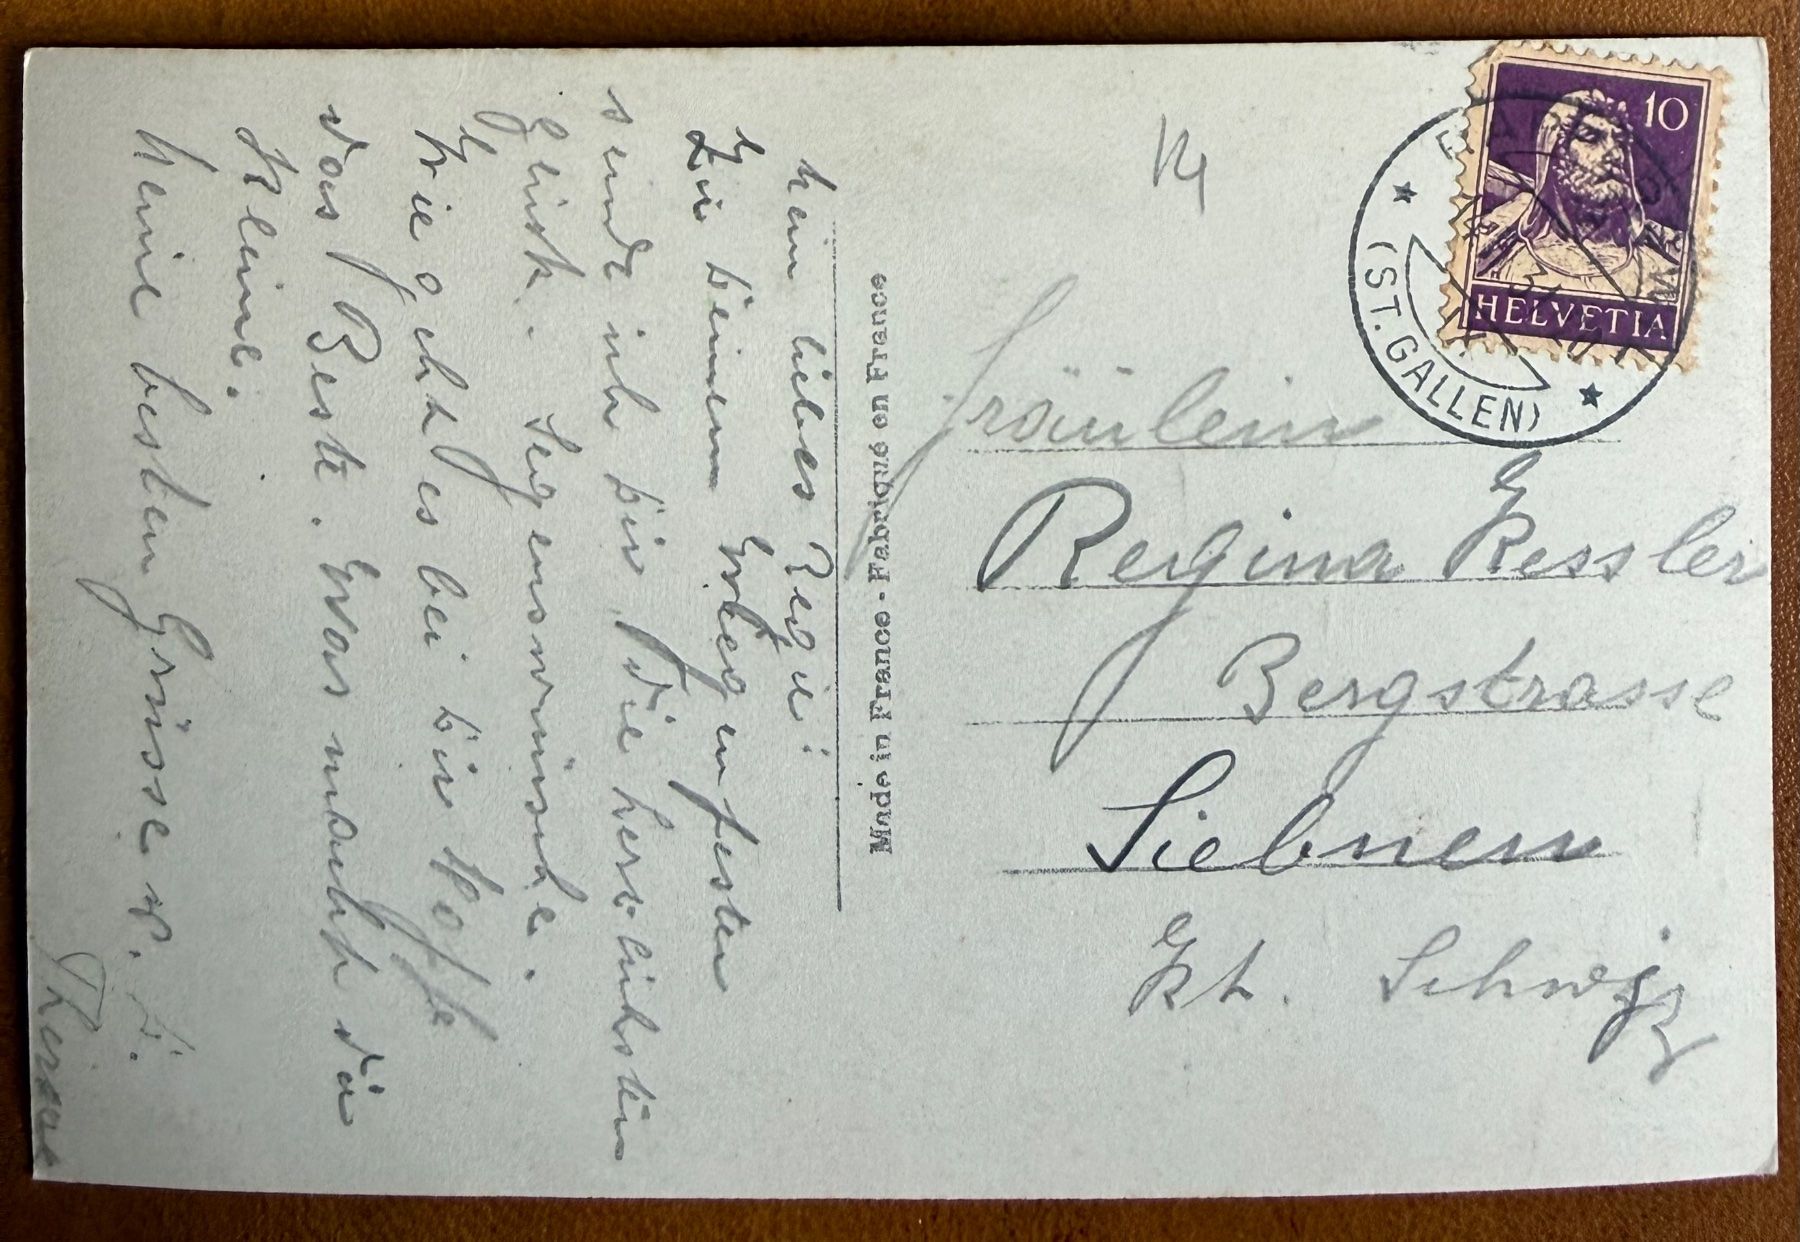 Mein liebes Regi!
Zu deinem Wiegenfesten
sende ich dir die herzlichsten
Glück. Segenswünsche.
Wie geht es bei dir Hoffe
das Beste. Was macht die
Kleine.
Meine besten Grüsse v. d.
Theres
Made in France - Fabriqué en France
10
HELVETIA
(ST. GALLEN)
Fräulein
Regina Kessler
Bergstrasse
Siebnen
Kt. Schwyz